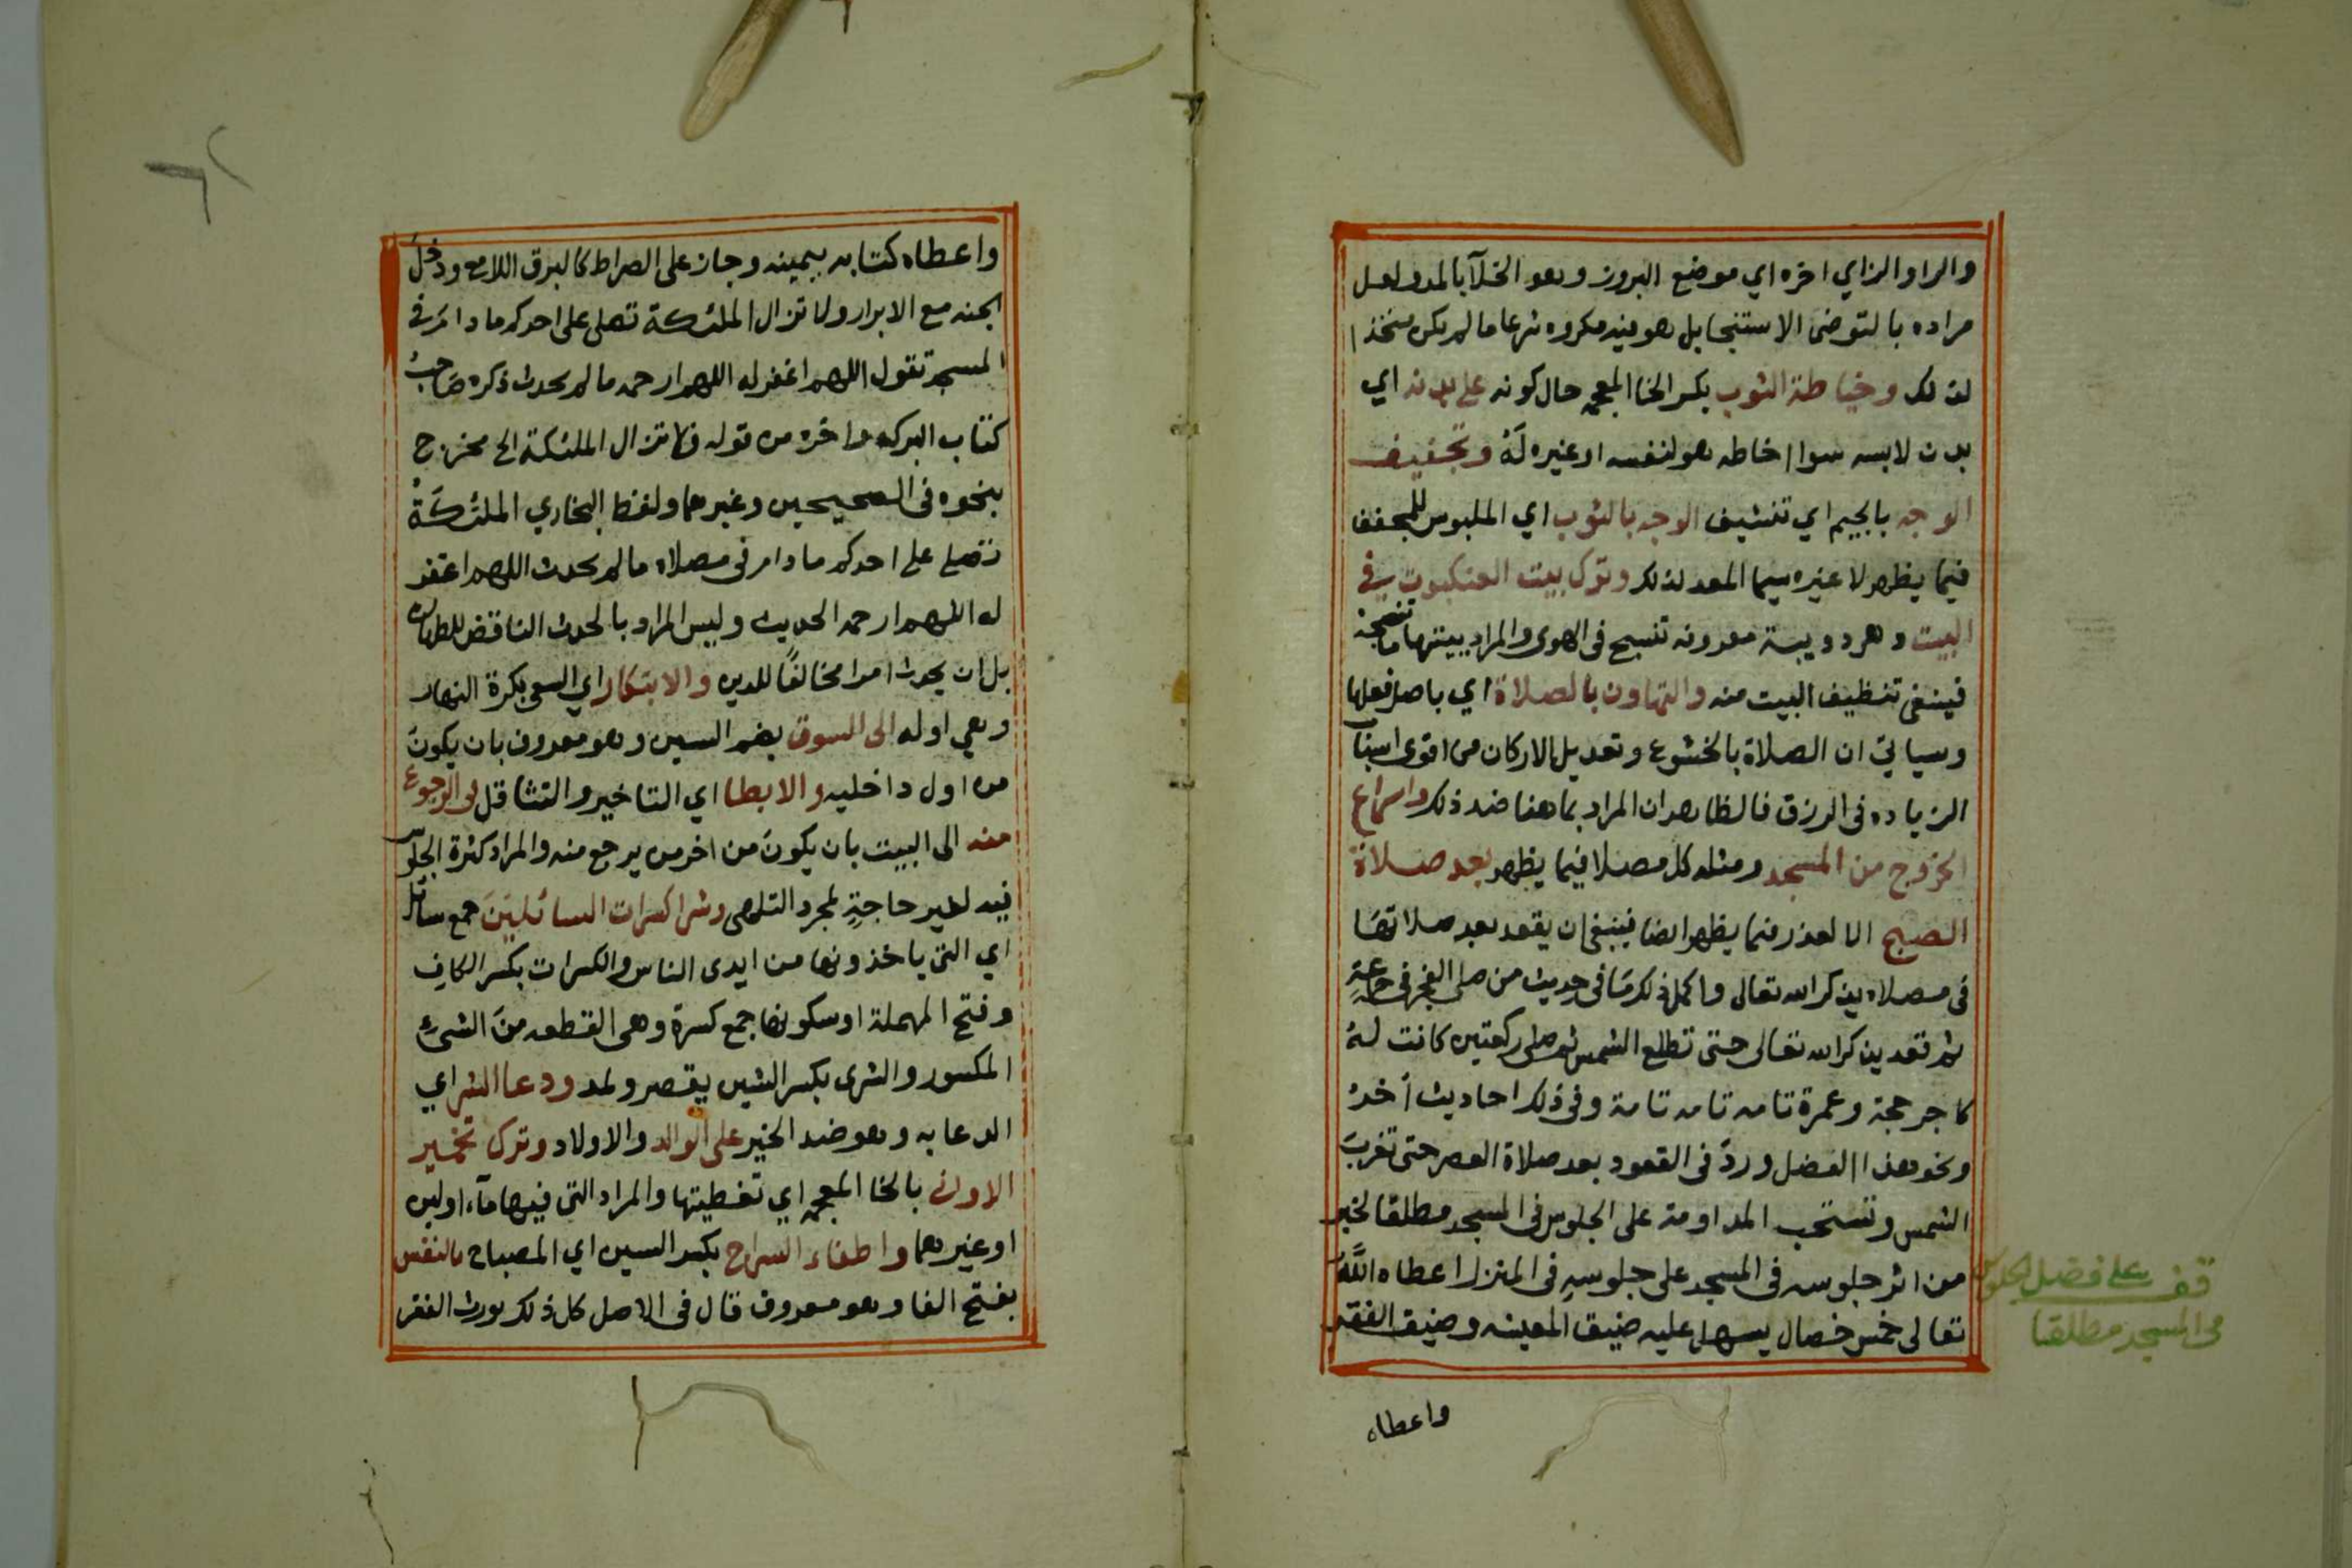 والرا والزاي اخره اي موضع البروز وهو الخلآ بالمد ولعل
مراده بالتوضى الاستنجا بل هو فيه مكروه شرعا مالم يكن متخذا
لذلك وخياطة الثوب بكسر الخا المعجمه حال كونه على بدنه اي
بدن لابسه سوا اخاطه هو لنفسه او غيره لَهُ وتجفيف
الوجه بالجيم اي تنشيف الوجه بالثوب اي الملبوس للمجفف
فيما يظهر لا غيره سيما المعد لذلك وترك بيت العنكبوت في
البيت وهى دويبة معروفه تنسج فى الهوى والمراد ببيتها ما تنسجه
فينبغى تنظيف البيت منه والتهاون بالصلاة اي باصل فعلها
وسياتي ان الصلاة بالخشوع وتعديل الاركان من اقوى اسباب
الزياده فى الرزق فالظاهر ان المراد بما هنا ضد ذلك واسراع
الخروج من المسجد ومثله كل مصلا فيما يظهر بعد صلاة
الصبح الا لعذر فيما يظهر ايضا فينبغى ان يقعد بعد صلاتها
فى مصلاه يذكر الله تعالى واكمل ذلك مَا فى حديث من صلى الفجر فى جماعةٍ
ثم قعد يذكر الله تعالى حتى تطلع الشمس ثم صلى ركعتين كانت لهُ
كاجر حجة وعمرة تامه تامه تامة وفى ذلك احاديث أخرُ
ونحو هذا الفضل وردَ فى القعود بعد صلاة العصر حتى تغربَ
الشمس وتستحب المداومة على الجلوس فى المسجد مطلقا لخبر
من اثر جلوسه فى المسجد على جلوسهِ فى المنزل اعطاه اللَّهُ
تعالى خمس خصال يسهل عليه ضيق المعيشه وضيق الفقر
واعطاه
قف على فضل الجلوس
فى المسجد مطلقا
واعطاه كتابه بيمينه وجاز على الصراط كالبرق اللامع ودخلَ
الجنه مع الابرار ولا تزال الملئكة تصلى على احدكم ما دامَ فى
المسجد تقول اللهم اغفر له اللهم ارحمه مالم يحدث ذكره صَاحبُ
كتاب البركه واخره من قوله ولا تزال الملئكة الخ مخرج
بنحوه فى الصحيحين وغيرهما ولفظ البخاري الملئكَةُ
تصلى على احدكم مادام فى مصلاه مالم يحدث اللهم اغفر
له اللهم ارحمه الحديث وليس المراد بالحدث الناقض للطهاره
بل ان يحدث امرا مخالفًا للدين والابتكار اي السعى بكرة النهار
وهي اوله الى السوق بضم السين وهو معروف بان يكونَ
من اول داخليه والابطا اي التاخير والتثاقل فى الرجوع
منه الى البيت بان يكونَ من اخر من يرجع منه والمراد كثرة الجلوس
فيه لغير حاجةٍ لمجرد التلهى وشرا كسرات السائليَنَ جمع سائل
اي التى ياخذونها من ايدى الناس والكسرات بكسر الكافِ
وفتح المهملة او سكونها جمع كسرة وهى القطعه منَ الشيءِ
المكسور والشرى بكسر الشين يقصر ويمد ودعا الشر اي
الدعا به وهو ضد الخير على الوالد والاولاد وترك تخمير
الاوانى بالخا المعجمه اي تغطيتها والمراد التى فيها مآء اولبن
او غيرهما واطفاء السراج بكسر السين اي المصباح بالنفس
بفتح الفا وهو معروف قال فى الاصل كل ذلك يورث الفقر